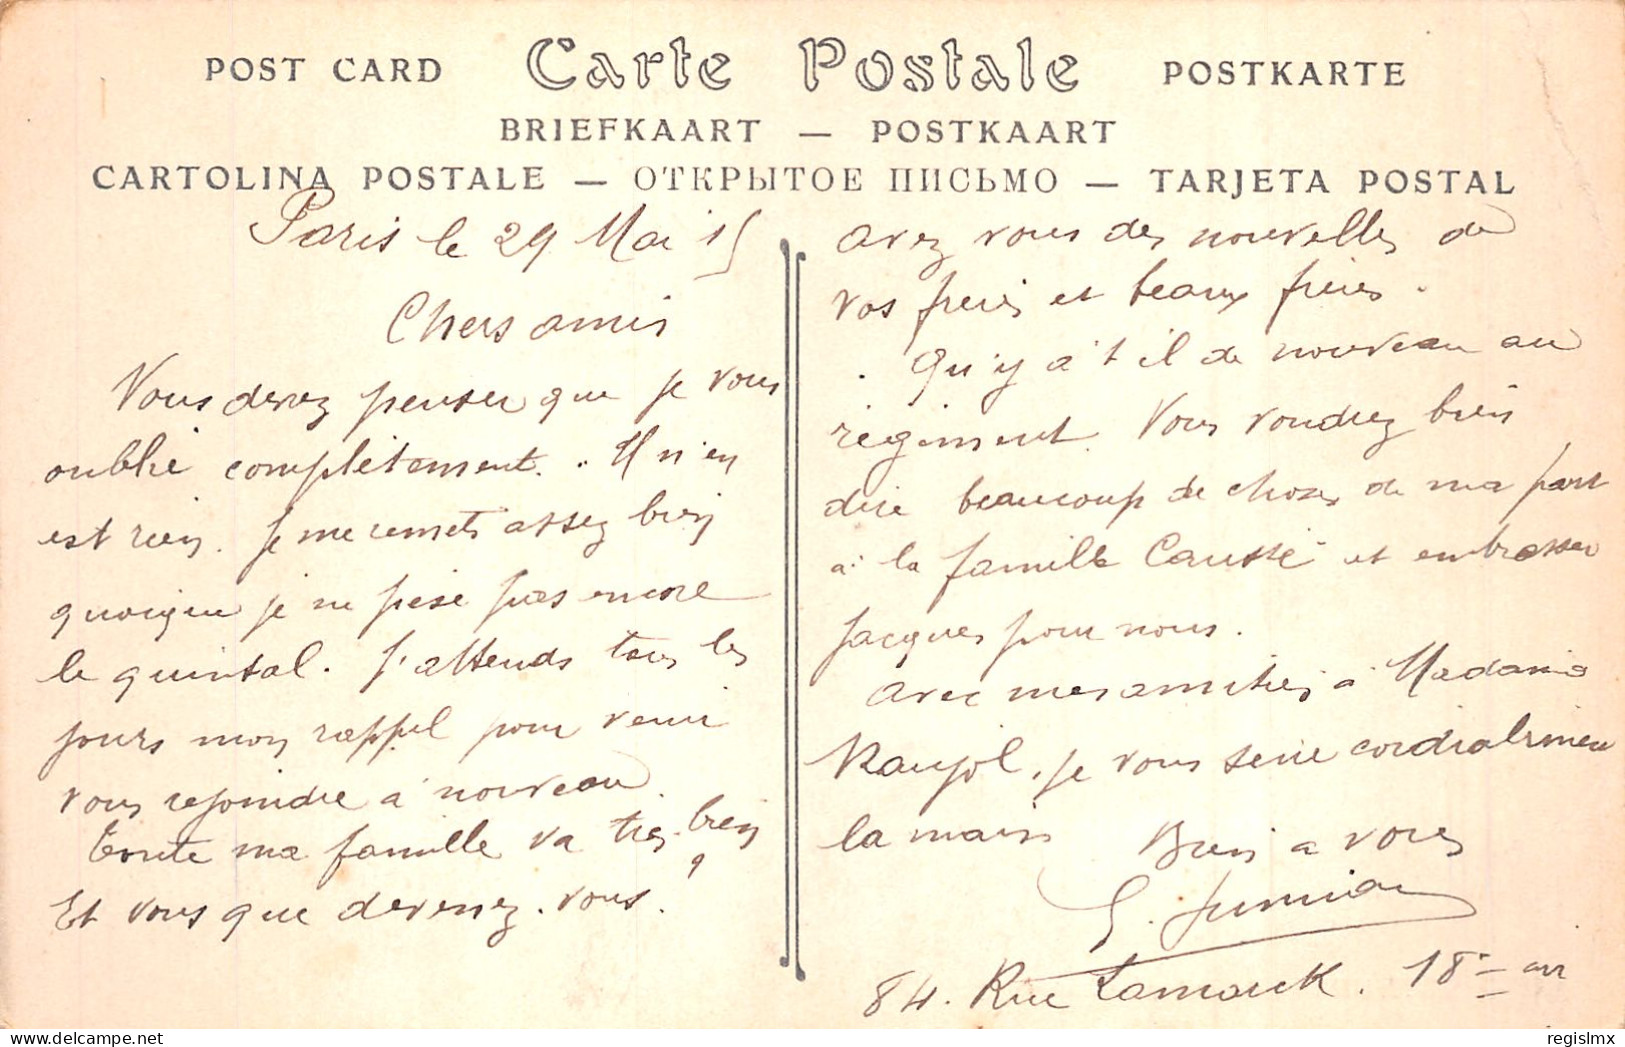 POST CARD Carte Postale POSTKARTE
BRIEFKAART — POSTKAART
CARTOLINA POSTALE — ОТКРЫТОЕ ПИСЬМО — TARJETA POSTAL
Paris le 29 Mai 15
Chers amis
Vous devez penser que je vous
oublie complètement. Il n'en
est rien. Je me remets assez bien
quoique je ne pèse pas encore
le quintal. J'attends tous les
jours mon rappel pour venir
vous rejoindre à nouveau.
Toute ma famille va très bien
Et vous que devenez-vous?
avez vous des nouvelles de
vos frères et beaux frères.
Qu'y a't il de nouveau au
régiment. Vous voudrez bien
dire beaucoup de choses de ma part
à la famille Causse et embrasser
Jacques pour nous.
avec mes amitiés à Madame
Raujol, je vous serre cordialement
la main
Bien a vous
G.
84. Rue Lamarck. 18me arr
regislmx